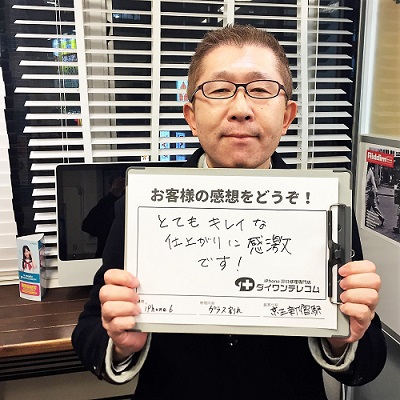 お客様の感想をどうぞ！
とても キレイな
仕上がりに 感激
です！
iPhone 即日修理専門店
ダイワンテレコム
iPhone 6
ガラス割れ
京王新宿駅
Riddim